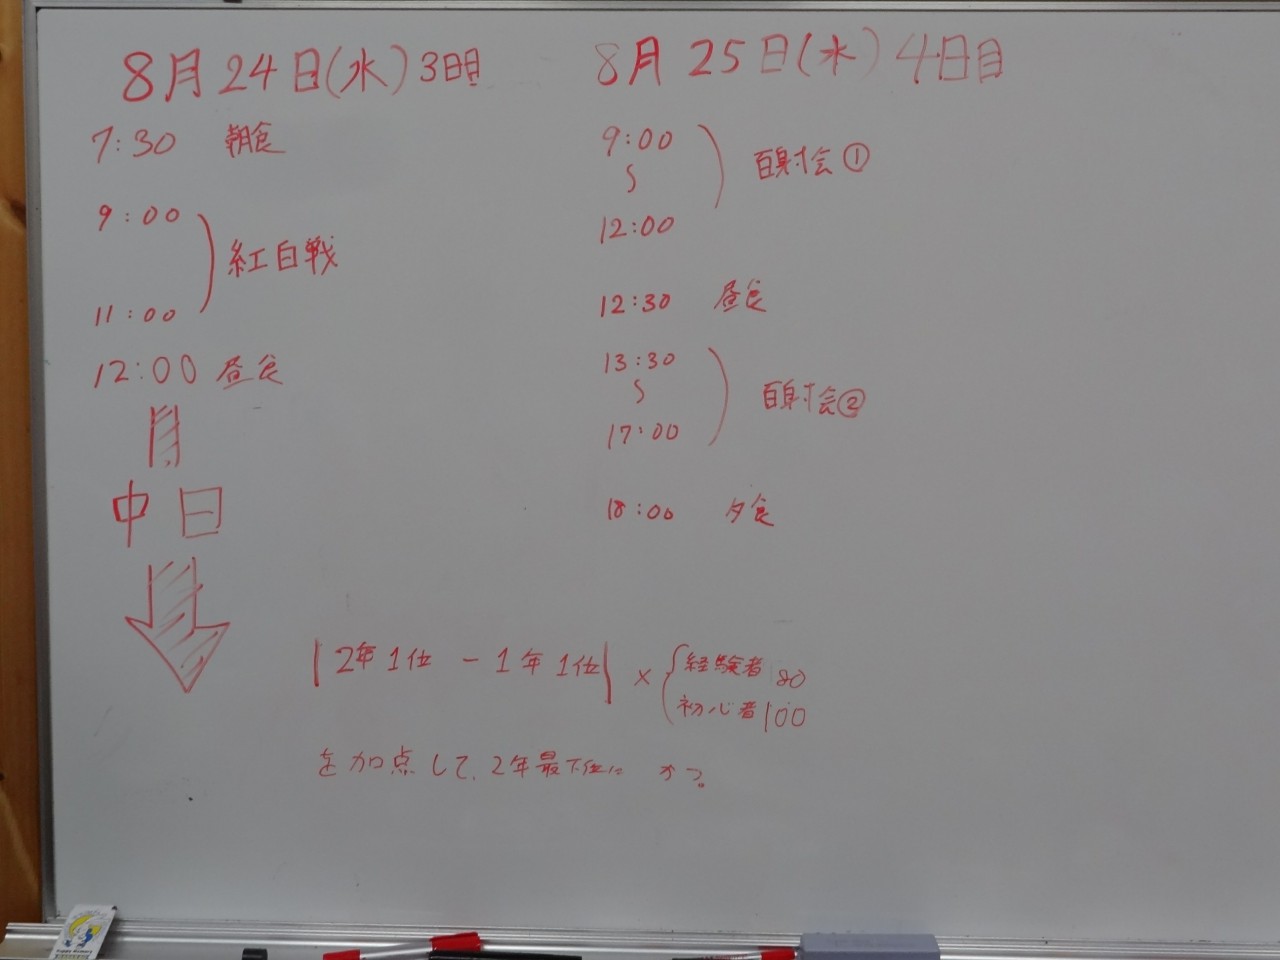 8月24日(水)3日目
7:30 朝食
9:00
11:00
紅白戦
12:00 昼食
中日
8月25日(木)4日目
9:00
〜
12:00
百射会①
12:30 昼食
13:30
〜
17:00
百射会②
18:00 夕食
|2年1位 - 1年1位| × { 経験者 80
初心者 100
を加点して、2年最下位に かつ。